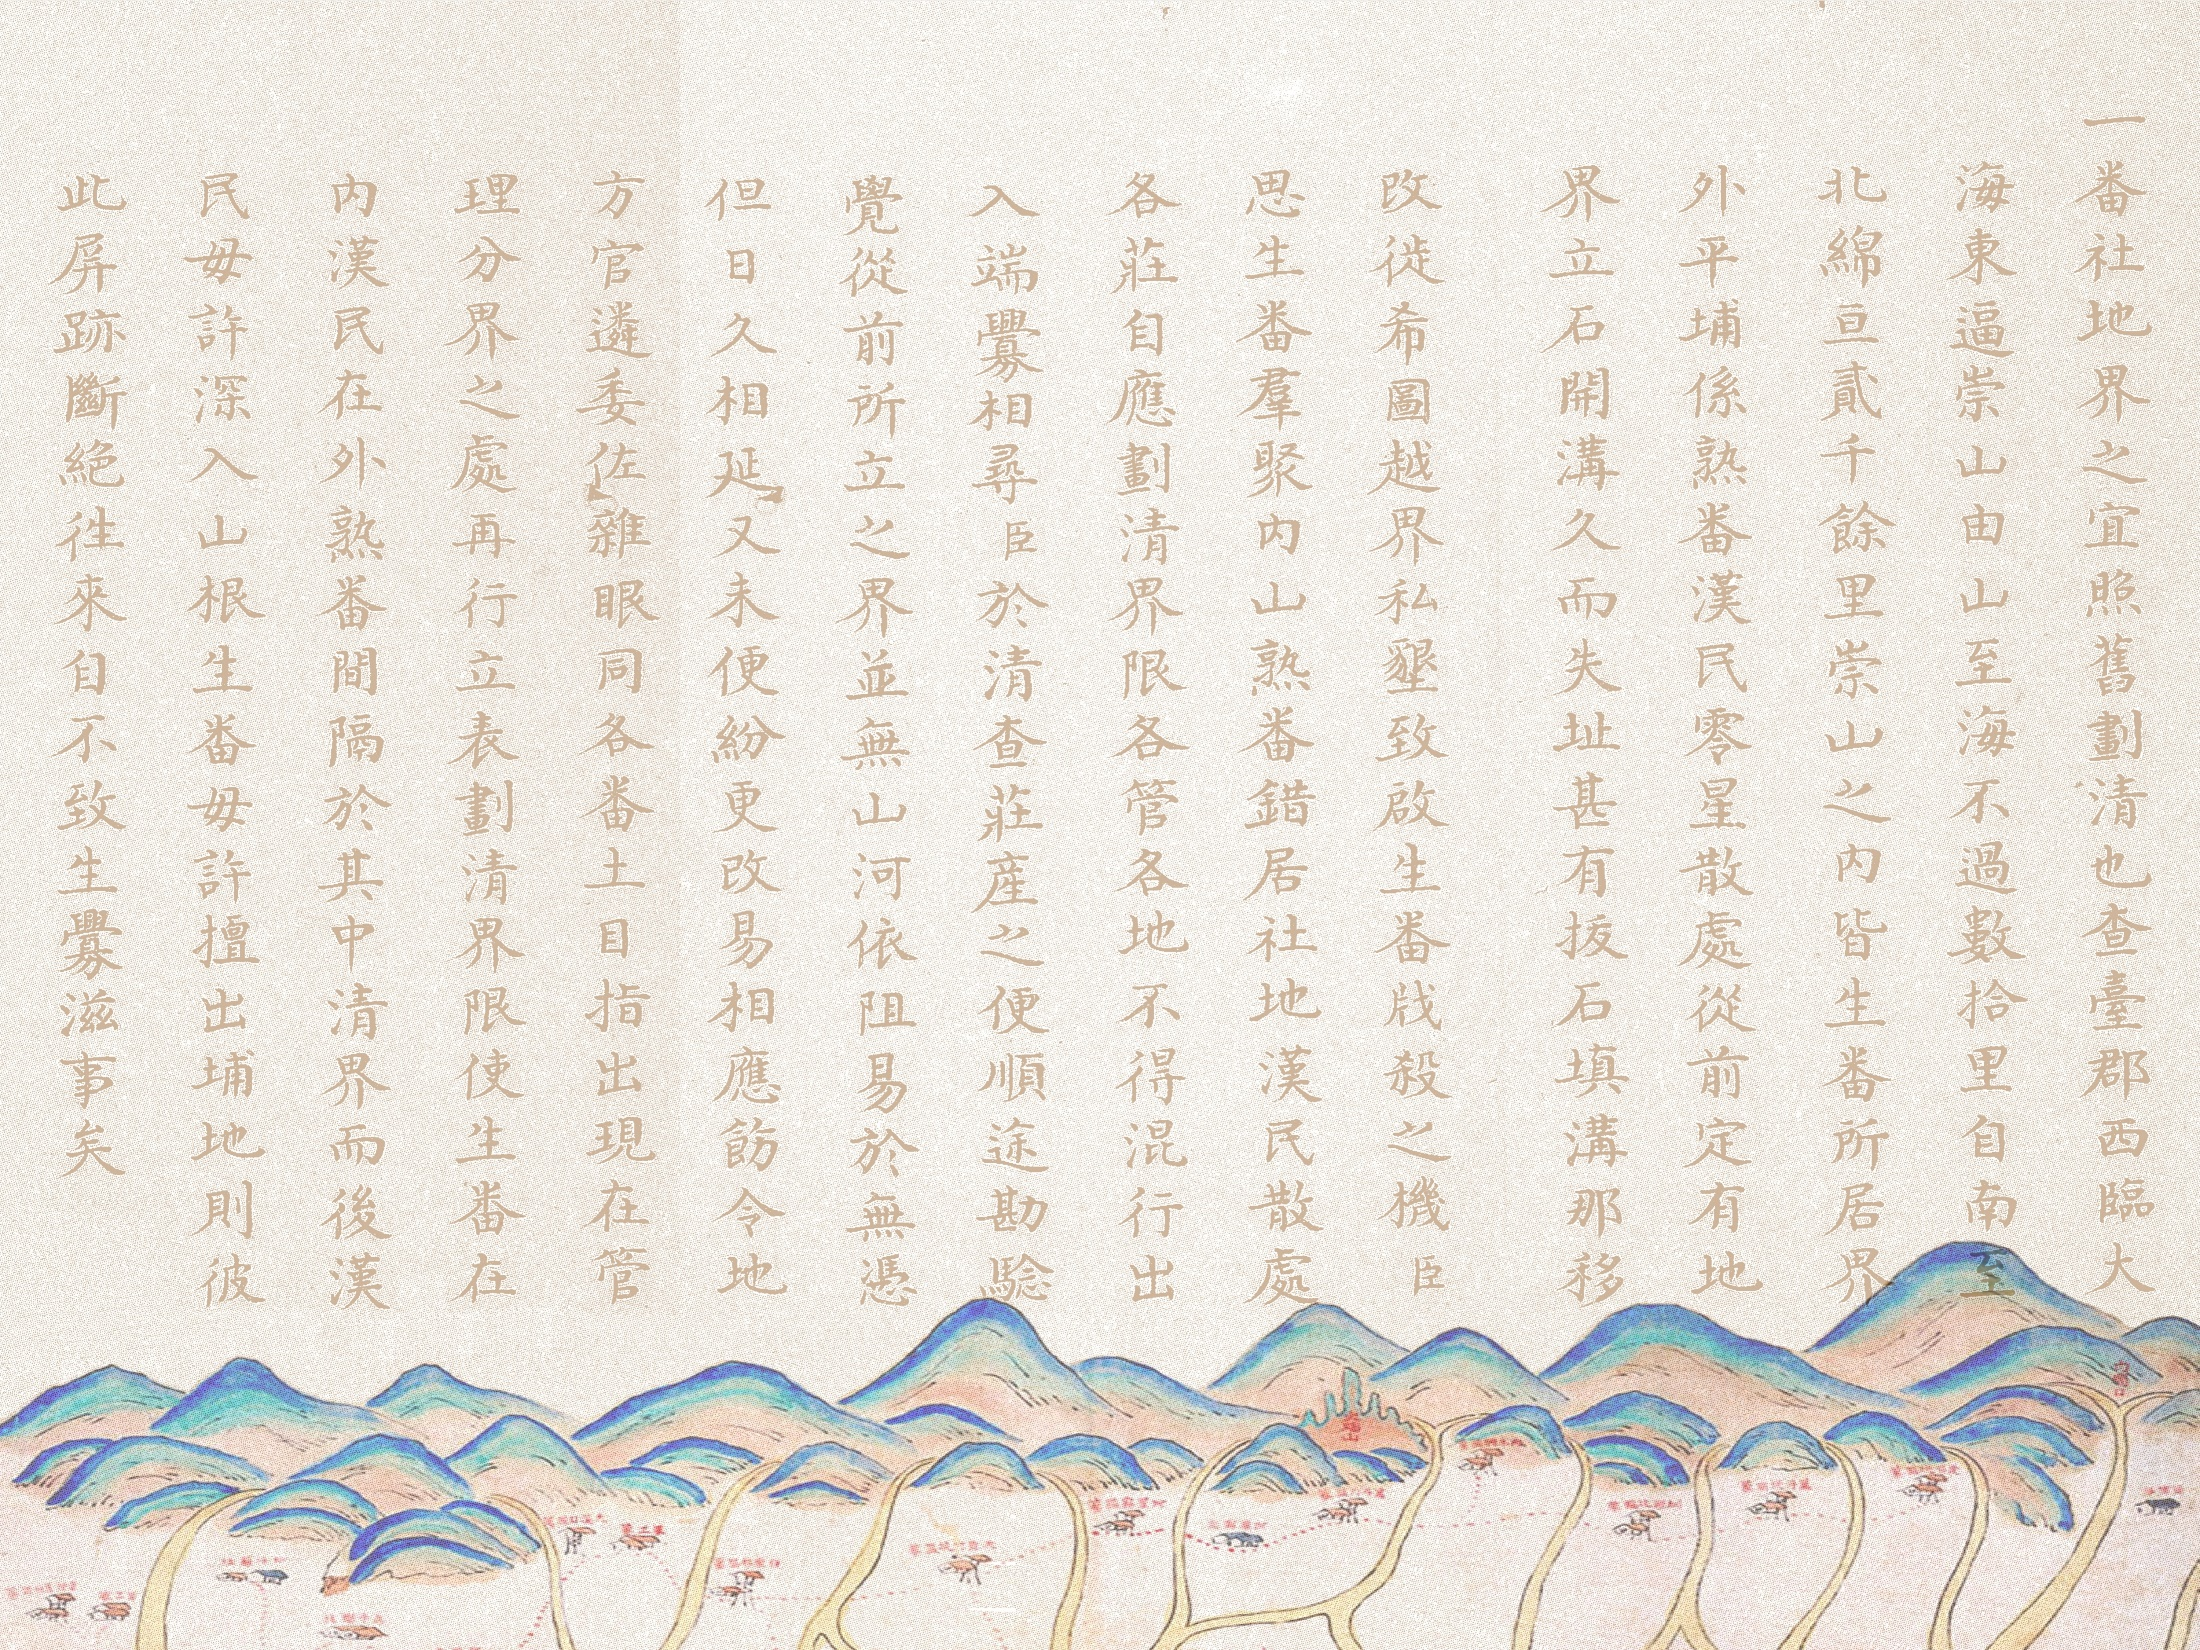 一番社地界之宜照舊劃清也查臺郡西臨大
海東逼崇山由山至海不過數拾里自南至
北綿亘貳千餘里崇山之內皆生番所居界
外平埔係熟番漢民零星散處從前定有地
界立石開溝久而失址甚有扳石填溝那移
改徙希圖越界私墾致啟生番戕殺之機臣
思生番羣聚內山熟番錯居社地漢民散處
各莊自應劃清界限各管各地不得混行出
入端釁相尋臣於清查莊産之便順途勘驗
覺從前所立之界並無山河依阻易於無憑
但日久相延又未便紛更改易相應飭令地
方官遴委佐雜眼同各番土目指出現在管
理分界之處再行立表劃清界限使生番在
內漢民在外熟番間隔於其中清界而後漢
民毋許深入山根生番毋許擅出埔地則彼
此屏跡斷絕徃來自不致生釁滋事矣